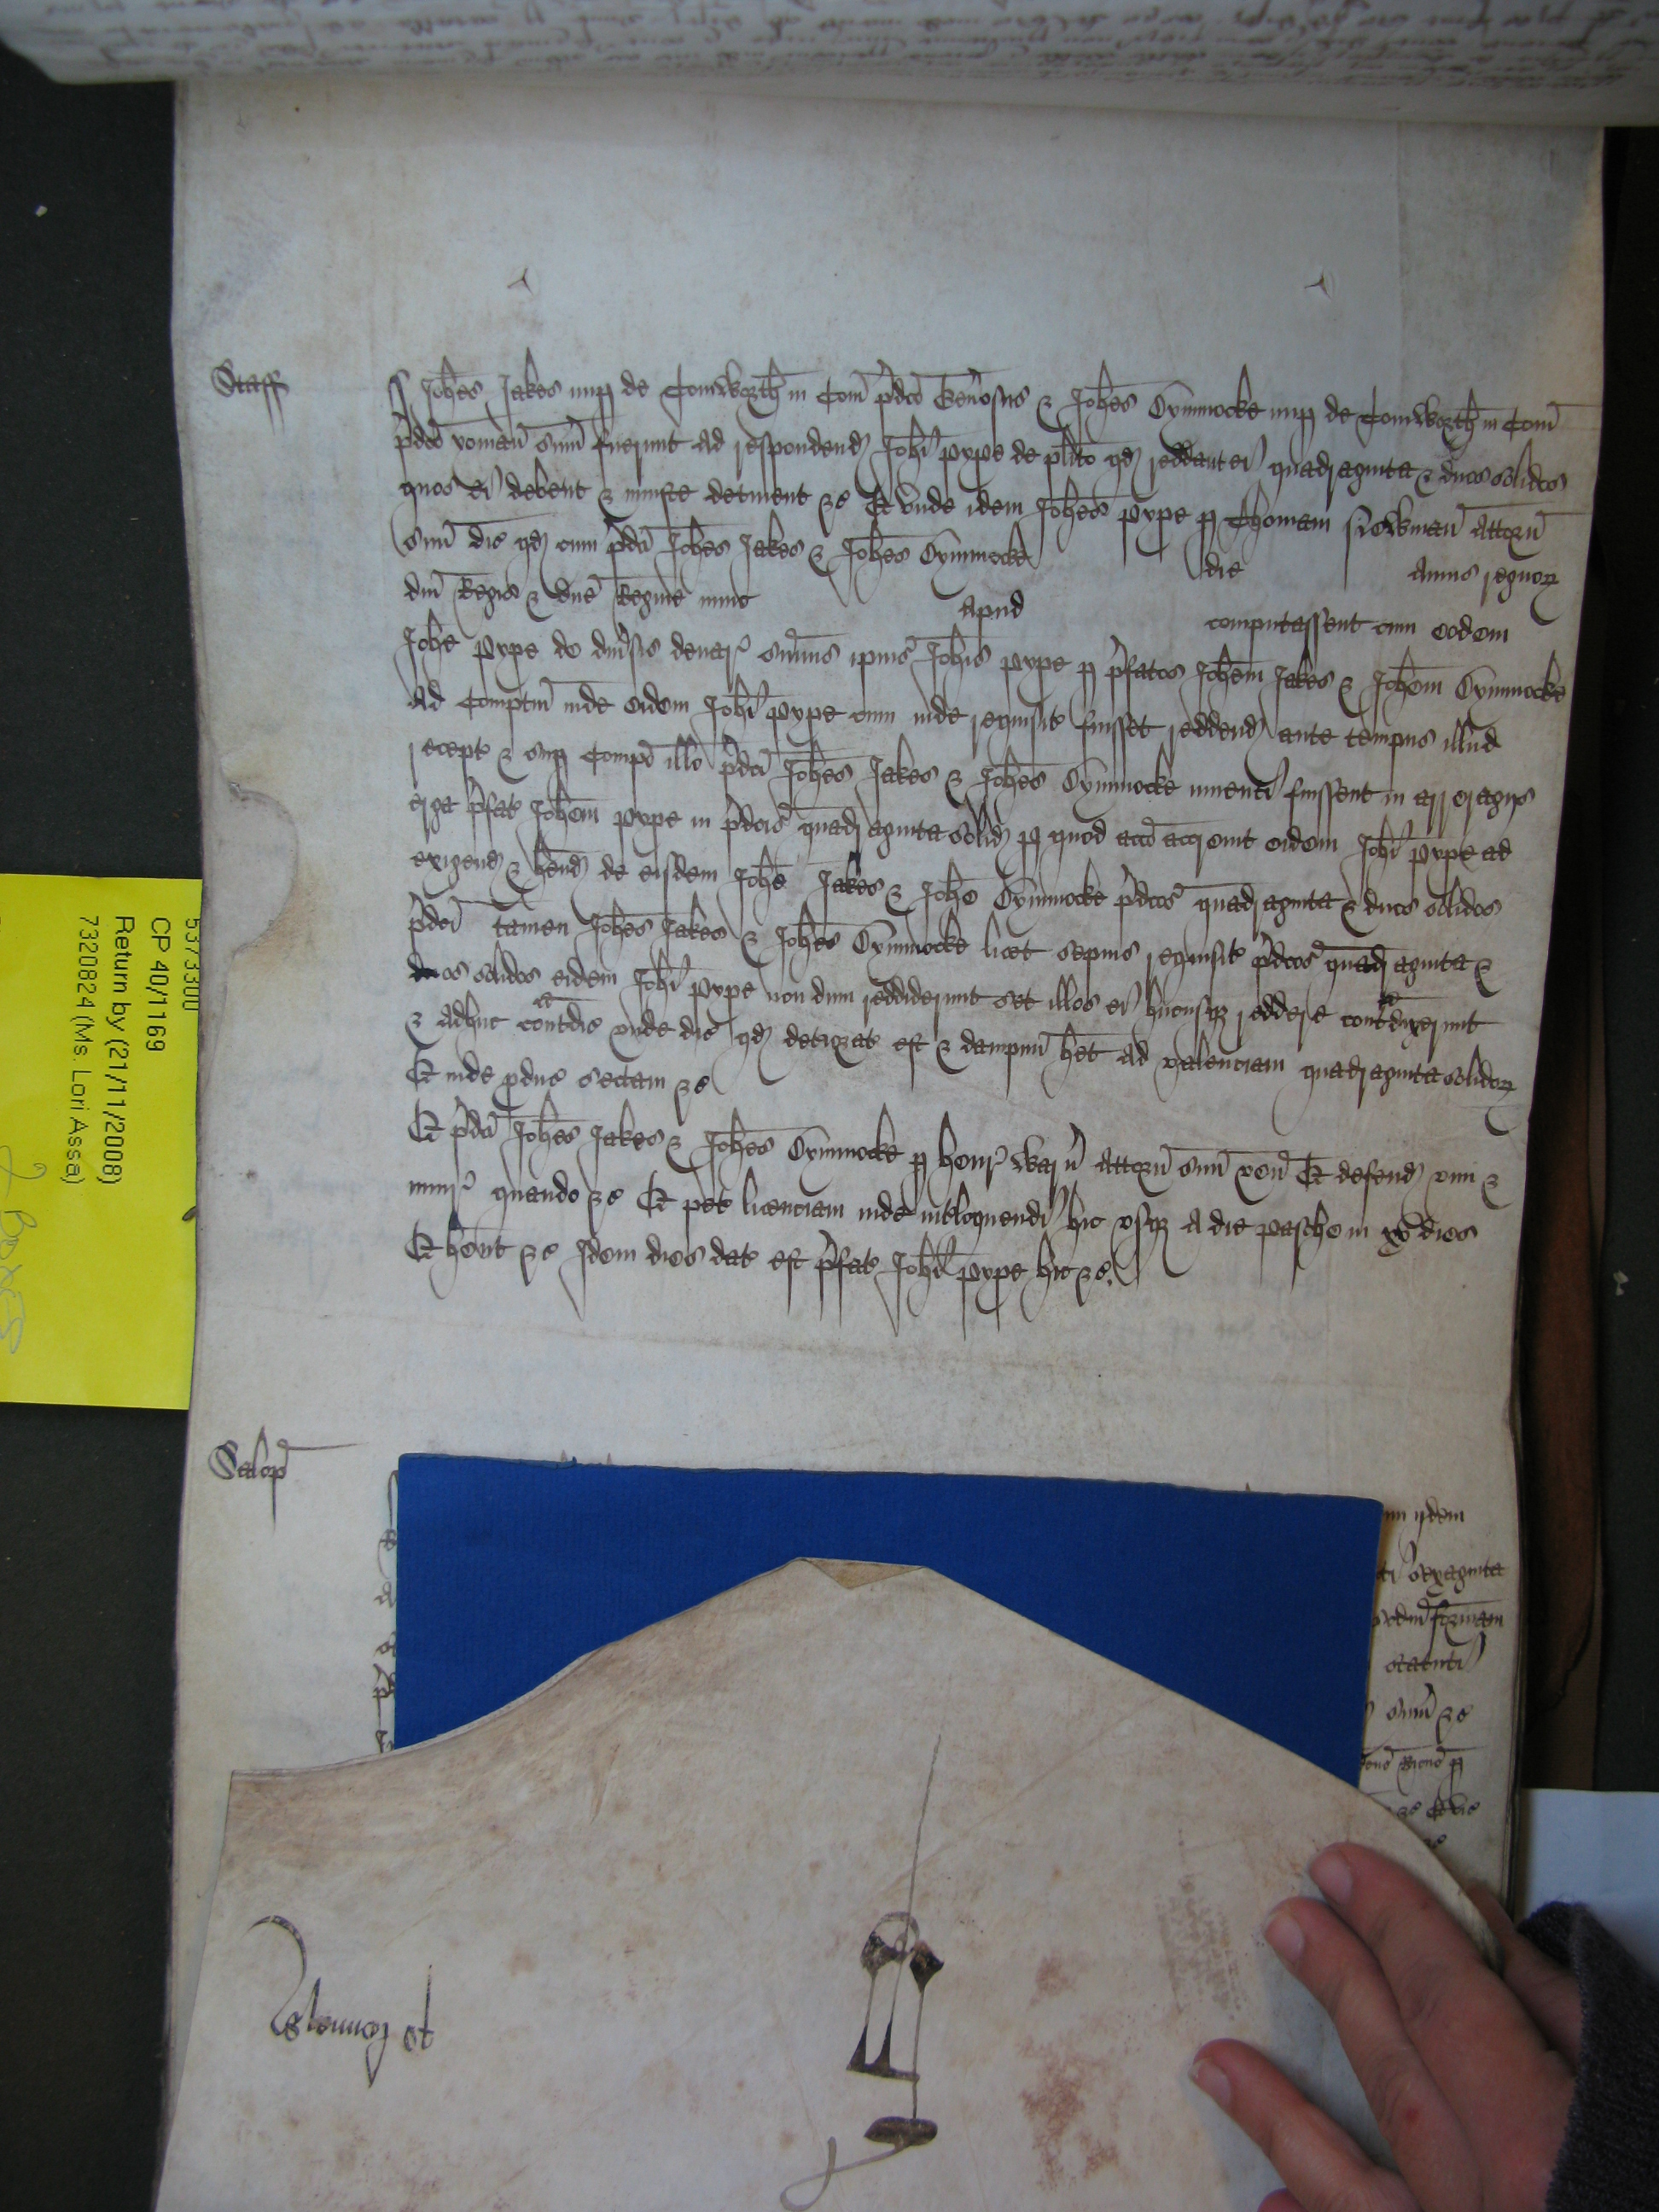 Staff
Johes Jakes nup de Tomworth in Com pdco Genosus & Johes Dymmocke nup de Tomworth in Com
pdco yoman sum fuerunt ad respondend Johi Pype de plito qd reddant ei quadraginta & duos solidos
quos ei debent & iniuste detinent &c Et unde idem Johes Pype p Thomam attorn
suum dic qd cum pdci Johes Jakes & Johes Dymmocke die annis regnor
dni Regis & dne Regine nunc apud computassent cum eodem
Johe Pype de divsis denar summis ipius Johis Pype p pfatos Johem Jakes & Johem Dymmocke
ad Comptm inde eidem Johi Pype cum inde requisit fuisset reddend ante tempus illud
recept & sup Compo illo pdci Johes Jakes & Johes Dymmocke inventi fuissent in arreragiis
erga pfat Johem Pype in pdcis quadraginta solid p quod acco accrevit eidem Johi Pype ad
exigend & hend de eisdem Johe Jakes & Johe Dymmocke pdcos quadraginta & duos solidos
pdci tamen Johes Jakes & Johes Dymmocke licet sepius requisit pdcos quadraginta &
duos solidos eidem Johi Pype non dum reddiderunt set illos ei hucusq reddere contradixerunt
& adhuc contradic unde dic qd deteriorat est & dampnu het ad valenciam quadraginta solidor
Et inde pduc sectam &c
Et pdci Johes Jakes & Johes Dymmocke p Henr attorn suum ven Et defend vim &
iniur quando &c Et pet licenciam inde intloquendi hic usq a die pasche in xv dies
Et hent &c Idem dies dat est pfat Johi Pype hic &c
Salop
idem
sexaginta
formam
statuti
suum &c
&c Et dic
5373300
CP 40/1169
Return by (21/11/2008)
7320824 (Ms. Lori Assa)
2 Boxes